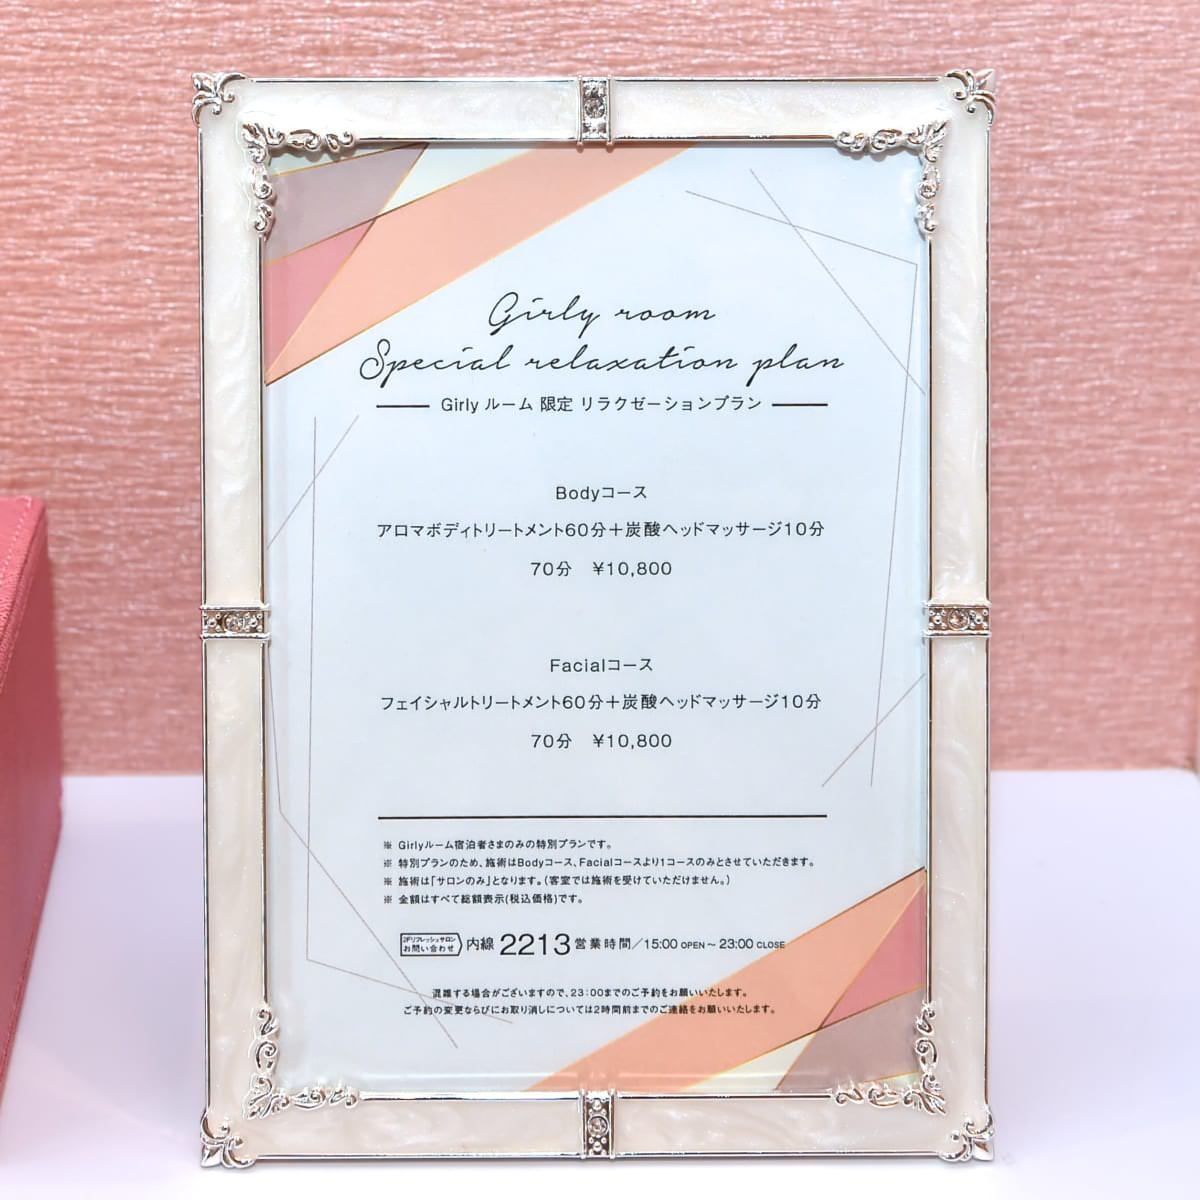 Girly room
Special relaxation plan
Girly ルーム 限定 リラクゼーションプラン
Bodyコース
アロマボディトリートメント60分＋炭酸ヘッドマッサージ10分
70分　¥10,800
Facialコース
フェイシャルトリートメント60分＋炭酸ヘッドマッサージ10分
70分　¥10,800
※ Girlyルーム宿泊者さまのみの特別プランです。
※ 特別プランのため、施術はBodyコース、Facialコースより1コースのみとさせていただきます。
※ 施術は「サロンのみ」となります。(客室では施術を受けていただけません。)
※ 金額はすべて総額表示(税込価格)です。
2Fリフレッシュサロン
お問い合わせ 内線 2213 営業時間／15:00 OPEN ～ 23:00 CLOSE
混雑する場合がございますので、23:00までのご予約をお願いいたします。
ご予約の変更ならびにお取り消しについては2時間前までのご連絡をお願いいたします。